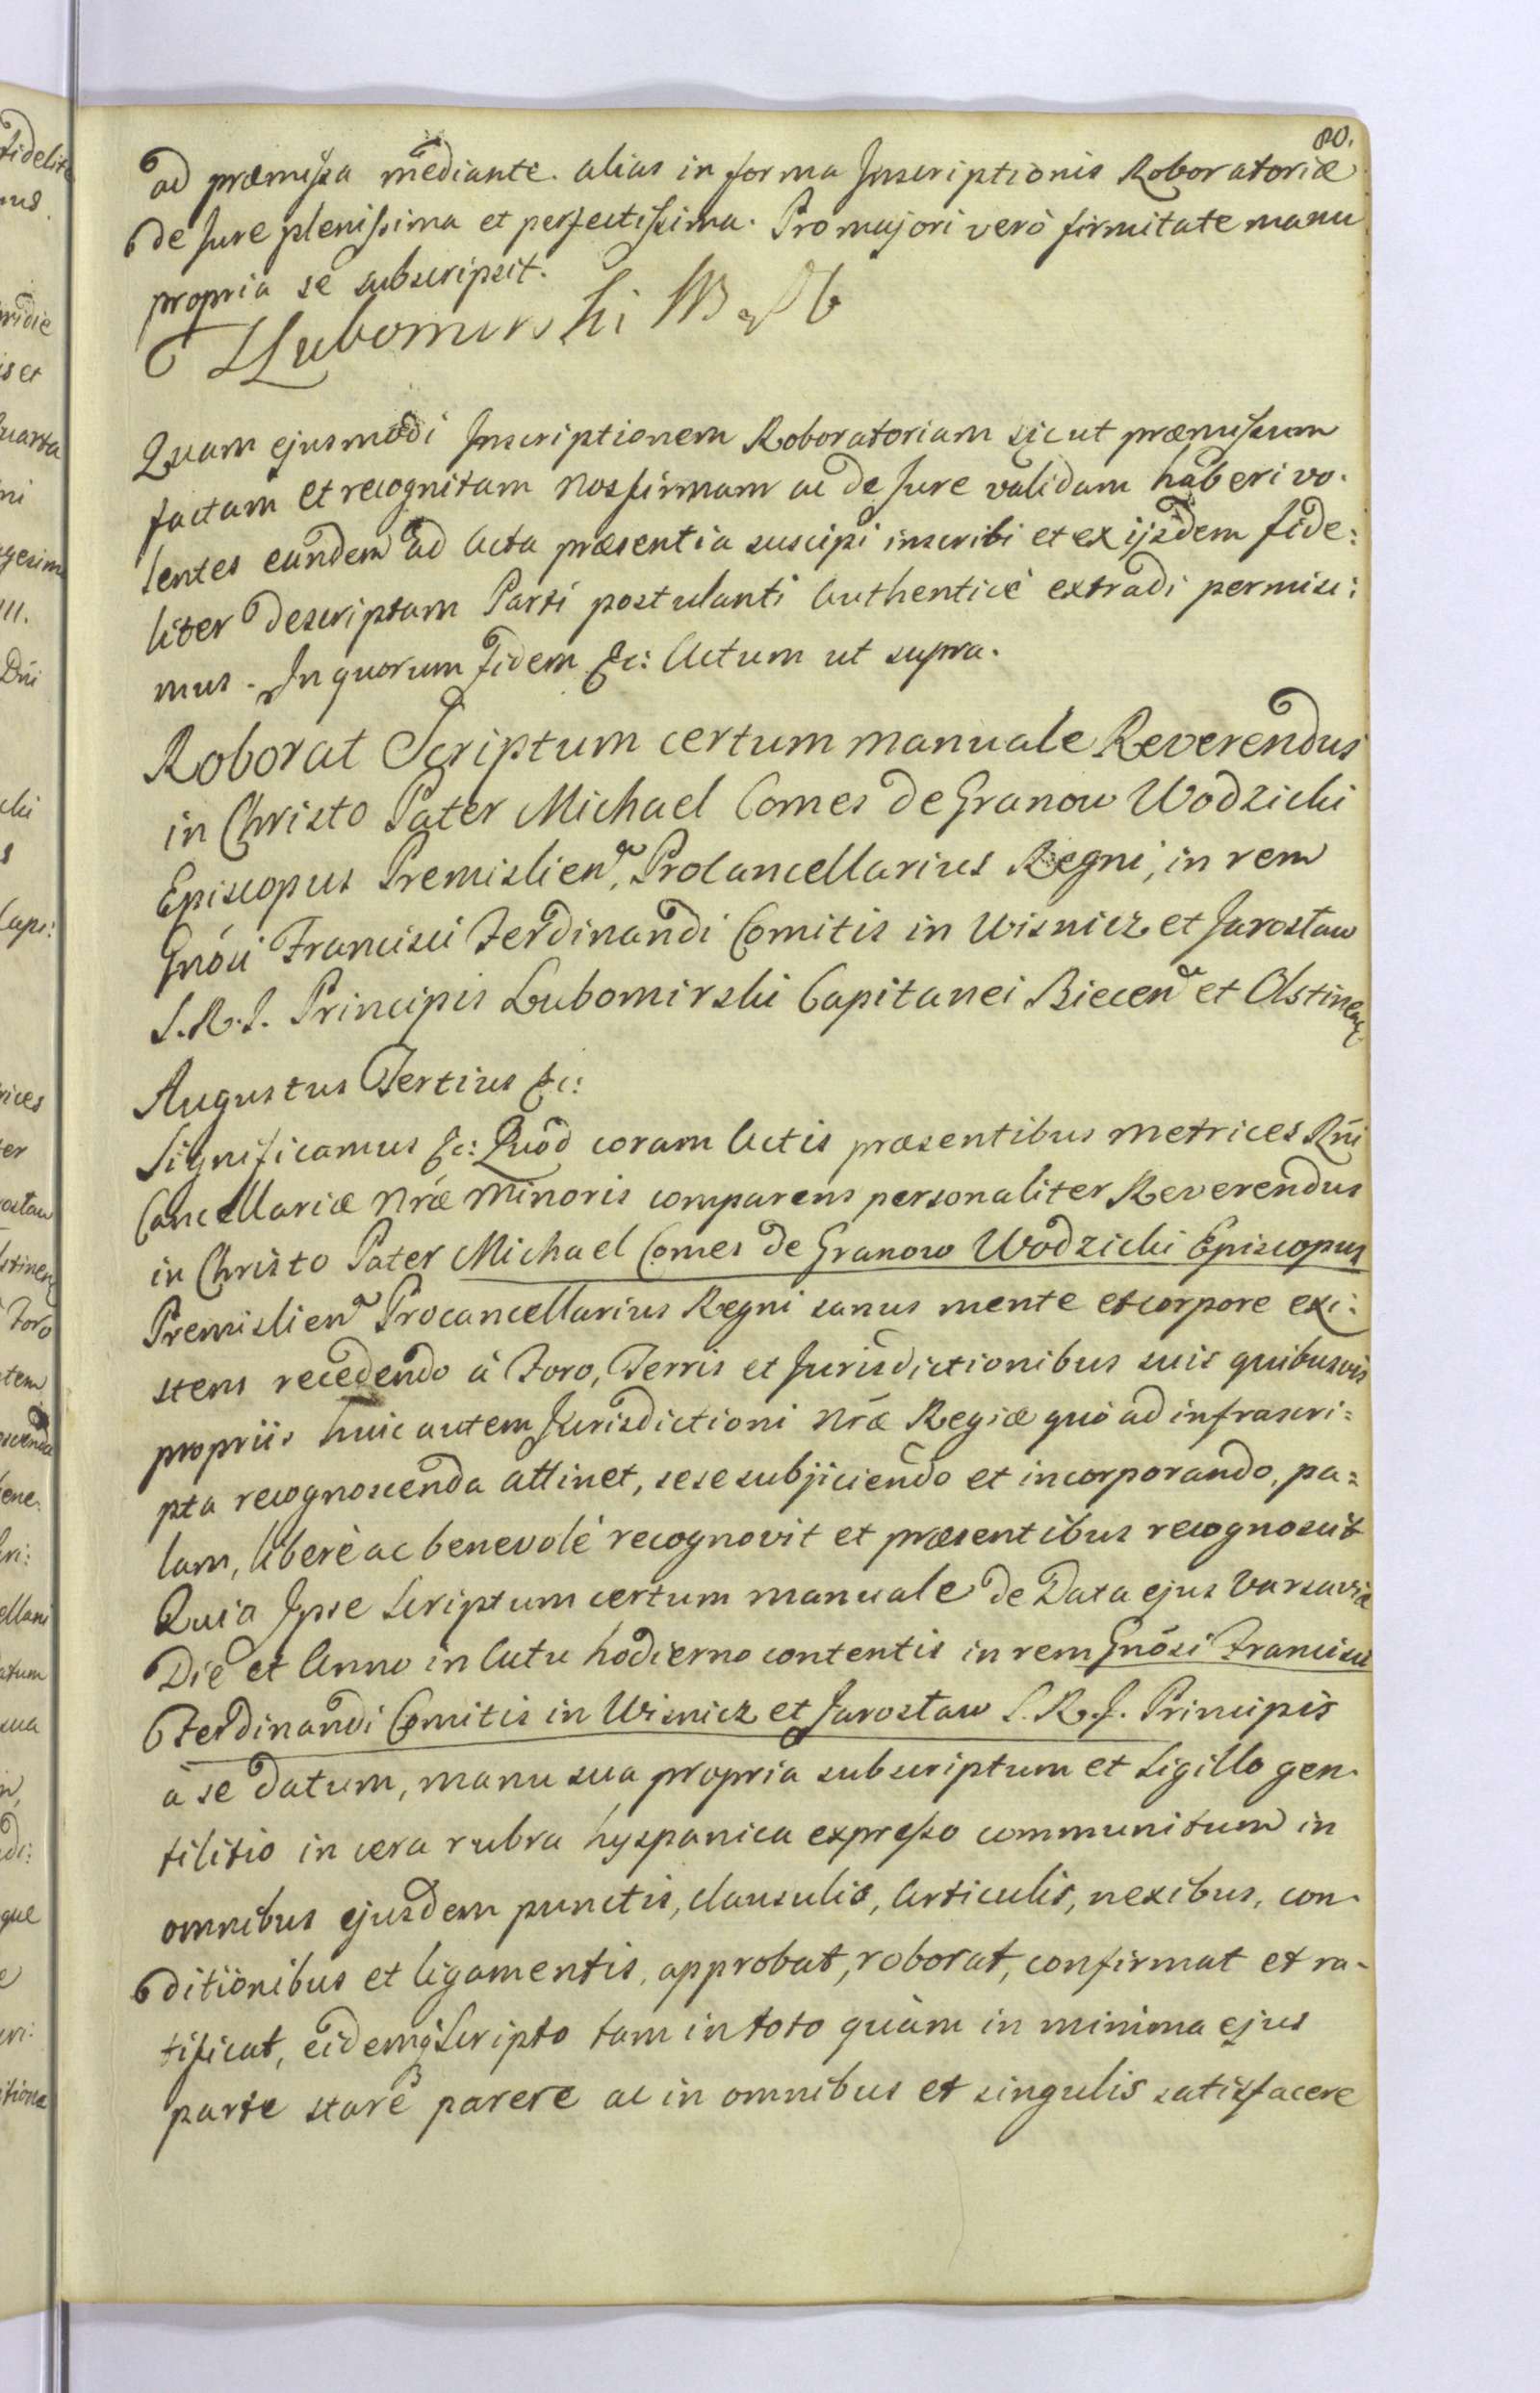 80.
ad præmissa mediante. alias in forma Inscriptionis Roboratoriæ
de Jure plenissima et perfectissima. Pro majori verò firmitate manu
propria se subscripsit.
Lubomirski
Quam ejusmodi Inscriptionem Roboratoriam sicut præmissum
factam et recognitam nos firmam ac de Jure validam haberi vo-
lentes eandem ad Acta præsentia suscipi inscribi et ex ijsdem fide:
liter descriptam Parti postulanti Authenticè extradi permisi:
mus. In quorum fidem &c: Actum ut supra.
Roborat Scriptum certum manuale Reverendus
in Christo Pater Michael Comes de Granow Wodzicki
Episcopus Premislien. Procancellarius Regni, in rem
Gnósi Francisci Ferdinandi Comitis in Wisnicz et Jarosław
S.R.I. Principis Lubomirski Capitanei Biecen et Olstinen
Augustus Tertius &c:
Significamus &c: Quòd coram Actis præsentibus Metrices Rñi
Cancellariæ Nræ Minoris comparens personaliter Reverendus
in Christo Pater Michael Comes de Granow Wodzicki Episcopus
Premislien Procancellarius Regni sanus mente et corpore exi:
stens recedendo à Foro, Terris et Jurisdictionibus suis quibusvis
propriis huic autem Jurisdictioni Nræ Regiæ quò ad infrascri=
pta recognoscenda attinet, sese subjiciendo et incorporando, pa=
lam, liberè ac benevolè recognovit et præsentibus recognoscit
Quia Ipse Scriptum certum manuale de Data ejus Varsaviæ
Die et Anno in Actu hodierno contentis in rem Gnósi Francisci
Ferdinandi Comitis in Wisnicz et Jarosław S.R.I. Principis
à se datum, manu sua propria subscriptum et Sigillo gen-
tilitio in cera rubra hyspanica expresso communitum in
omnibus ejusdem punctis, clausulis, Articulis, nexibus, con-
ditionibus et ligamentis, approbat, roborat, confirmat et ra-
tificat, eidemq Scripto tam in toto quàm in minima ejus
parte stare parere ac in omnibus et singulis satisfacere